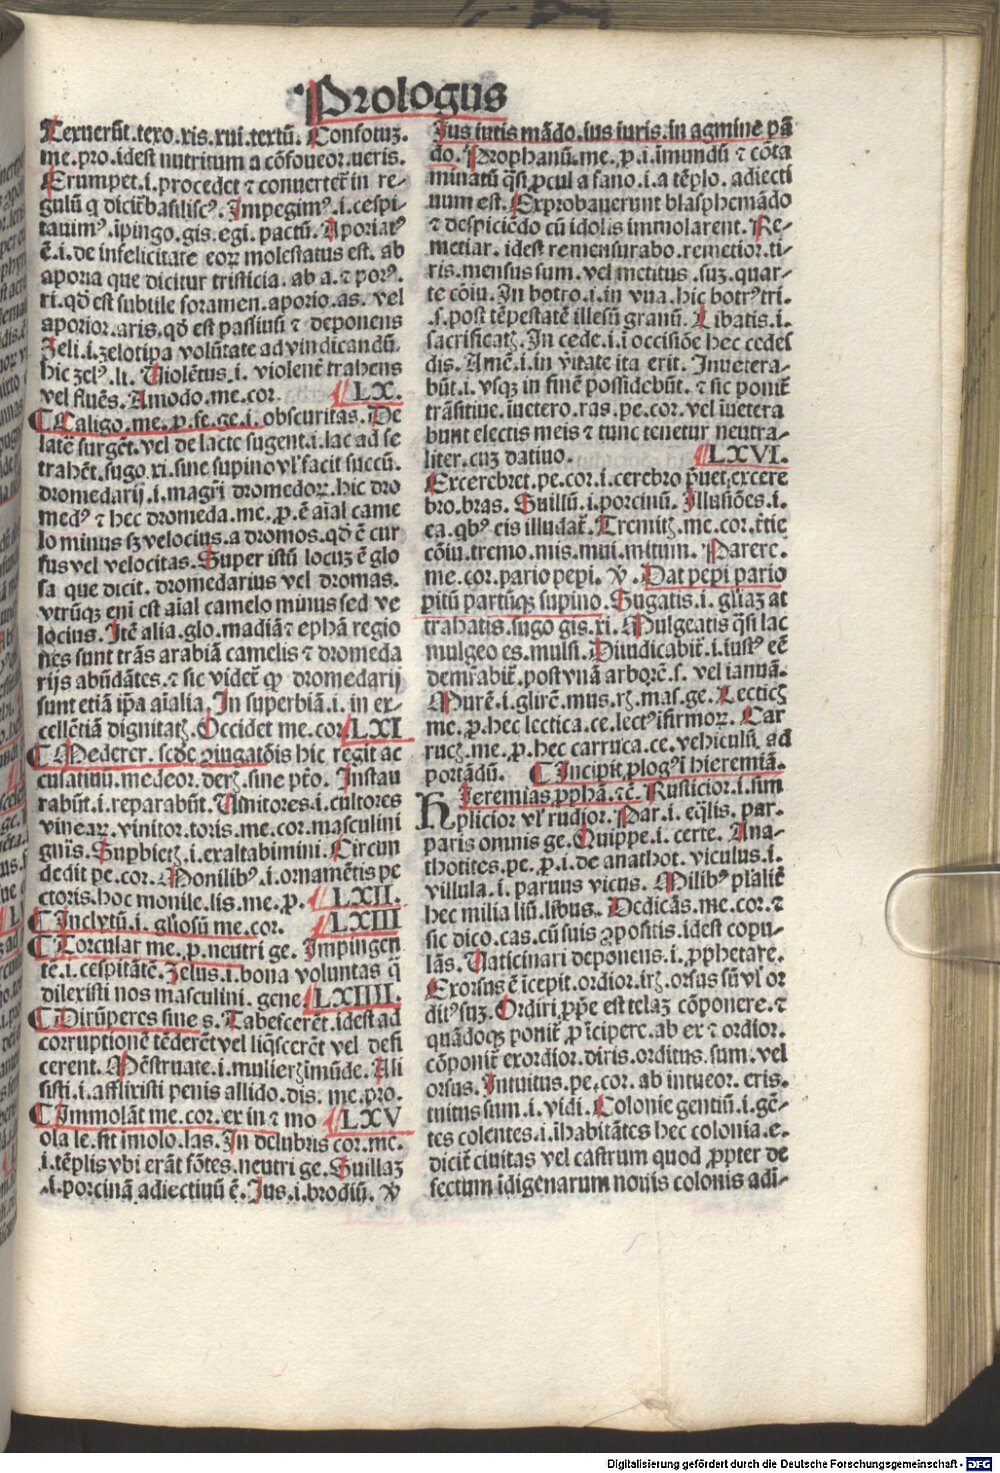 Prologus
Texuerūt.texo.xis.xui.textū. Confotuꝫ.
me.pro.idest nutritum a cōfoueor.ueris.
Erumpet.i.procedet ⁊ conuertet̄ in re-
gulū q dicit̄ basiliscꝰ. Impegimꝰ.i.cespi-
tauimꝰ.īpingo.gis.egi.pactū. Aporiatꝰ
ē.i.de infelicitate eoꝝ molestatus est. ab
aporia que dicitur tristicia. ab a.⁊ porꝰ.
ri.qd̄ est subtile foramen.aporio.as. vel
aporior.aris.qd̄ est passiuū ⁊ deponens
Zeli.i.zelotipa volūtate ad vindicandū.
hic zelꝰ.li. Uiolētus.i. violent̄ trahens
vel fluēs. Amodo.me.cor. LX.
Caligo.me.p.fe.ge.i.obscuritas. De
latēt surgēt.vel de lacte sugent.i.lac ad se
trahēt.sugo.xi.sine supino vl̄ facit succū.
dromedarij.i.magr̄i dromedoꝝ.hic dro
medꝰ ⁊ hec dromeda.me.p.ē aīal came
lo minus sꝫ velocius.a dromos.qd̄ ē cur
sus vel velocitas. Super istū locuꝫ ē glo
sa que dicit. dromedarius vel dromas.
vtrūqꝫ eni est aīal camelo minus sed ve
locius. Itē alia.glo.madiā ⁊ ephā regio
nes sunt trās arabiā camelis ⁊ dromeda
rijs abūdātes.⁊ sic videt̄ ꝙ dromedarij
sunt etiā ip̄a aīalia. In superbiā.i. in ex-
cellētiā dignitatꝫ. Occidet me.cor LXI
Mederer. scd̄e ꝯiugatōis hic regit ac
cusatiuū.medeor.derꝫ.sine p̄to. Instau
rabūt.i.reparabūt. Uinitores.i.cultores
vineaꝝ.vinitor.toris.me.cor.masculini
gn̄is. Supbietꝫ.i.exaltabimini. Circun
dedit pe.cor. Monilibꝰ.i.ornamētis pe
ctoris.hoc monile.lis.me.p. LXII.
Inclytū.i. gl̄iosū me.cor. LXIII
Torcular me.p.neutri ge. Impingen
te.i.cespitātē. Zelus.i.bona voluntas q̄
dilexisti nos masculini. gene. LXIIII.
Dirūperes sine s. Tabescerēt.idest ad
corruptionē tēderēt vel liq̄scerēt vel defi
cerent. Mēstruate.i.mulierꝫ imūde. Ali
sisti.i.afflixisti penis allido.dis. me.pro.
Immolāt me.cor.ex in ⁊ mo LXV
ola le.fit imolo.las. In delubris cor.me.
.i.tēplis vbi erāt fōtes.neutri ge. Suillaꝫ
.i.porcinā adiectiuū ē. Jus.i.brodiū. ꝟ
Jus iuris mādo.ius iuris.in agmine pā
do. Prophanū.me.p.i.imundū ⁊ cōta
minatū q̄si ꝓcul a fano.i.a tēplo. adiecti
uum est. Exprobauerunt blasphemādo
⁊ despiciēdo cū idolis immolarent. Re-
metiar. idest remensurabo.remetior.ti-
ris.mensus sum. vel metitus .suꝫ.quar-
te cōiu. In botro.i.in vua.hic botrꝰ tri.
.s.post tēpestatē illesū granū. Libatis.i.
sacrificatꝫ. In cede.i.i occisiōe hec cedes
dis. Amē.i.in vitate ita erit. Inuetera-
būt.i. vsqꝫ in finē possidebūt.⁊ sic ponit̄
trāsitiue.iuetero.ras.pe.cor.vel iuetera
bunt electis meis ⁊ tunc tenetur neutra-
liter.cuꝫ datiuo. LXVI.
Excerebret.pe.cor.i.cerebro p̄uet.excere
bro.bras. Suillū.i.porcinū. Illusiōes.i.
ea.qbꝰ eis illudat̄. Tremitꝫ.me.cor.t̄tie
cōiu.tremo.mis.mui.mitum. Parere.
me.cor.pario pepi. ꝟ. Dat pepi pario
pitū partūqꝫ supino. Sugatis.i. gl̄iaꝫ at
trahatis.sugo gis.xi. Mulgeatis q̄si lac
mulgeo es.mulsi. Diiudicabit̄.i.iustꝰ eē
demr̄abit̄.post vnā arborē.s. vel ianuā.
Murē.i.glirē.mus.rꝫ.mas.ge. Lecticꝫ
me.p.hec lectica.ce.lectꝰ ifirmoꝝ. Car
rucꝫ.me.p.hec carruca.ce.vehiculū ad
portādū. Incipit ꝓlogꝰ ī hieremiā.
HIeremias ꝓphā.⁊c̄. Rusticior.i.sim
plicior vl̄ rudior. Par.i.eq̄lis. par.
paris omnis ge. Quippe.i.certe. Ana-
thotites.pe.p.i.de anathot. viculus.i.
villula.i.paruus vicus. Milibꝰ pl̄alit̄
hec milia liū.libus. Dedicās.me.cor.⁊
sic dico.cas.cū suis ꝯpositis.idest copu-
lās. Uaticinari deponens.i.ꝓphetare.
Exorsus ē icepit.ordior.irꝫ.orsus sū vl̄ or
ditꝰ suꝫ. Ordiri ꝓp̄e est telaꝫ cōponere.⁊
quādoqꝫ ponit̄ ꝓ icipere.ab ex ⁊ ordior.
cōponit̄ exordior.diris.orditus.sum.vel
orsus. Intuitus.pe.cor. ab intueor. eris.
tuitus sum.i.vidi. Colonie gentiū.i.gē-
tes colentes.i.ihabitātes hec colonia.e.
dicit̄ ciuitas vel castrum quod ꝓpter de
fectum idigenarum nouis colonis adi-
Digitalisierung gefördert durch die Deutsche Forschungsgemeinschaft - DFG